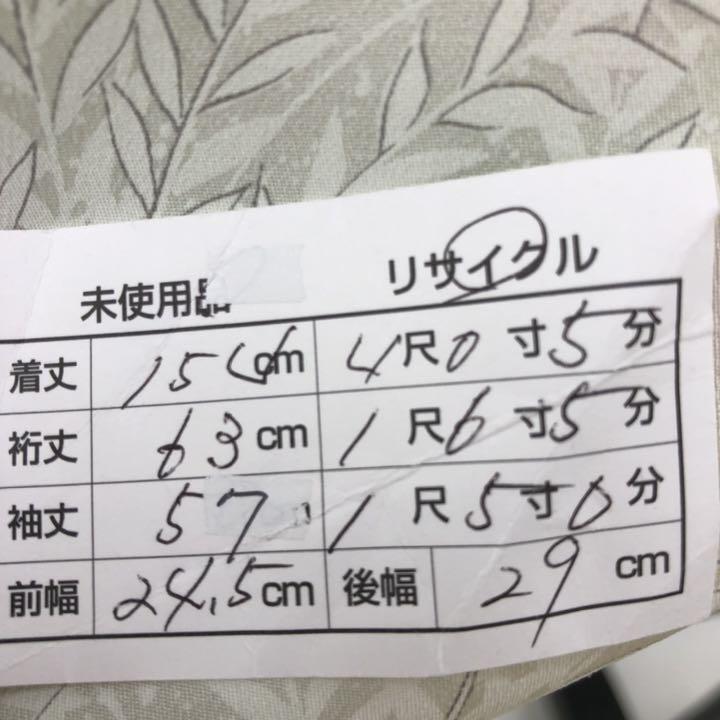 未使用品 リサイクル
着丈 154cm 4尺0寸5分
裄丈 63cm 1尺6寸5分
袖丈 57 1尺5寸0分
前幅 24.5cm 後幅 29cm